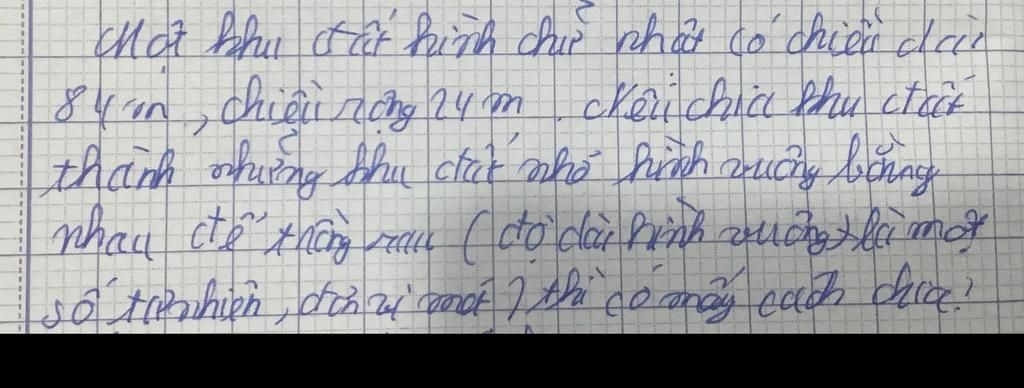 Một khu đất hình chữ nhật có chiều dài
84 m, chiều rộng 24 m. Nếu chia khu đất
thành những khu đất nhỏ hình vuông bằng
nhau để trồng rau (độ dài hình vuông là một
số tự nhiên, đơn vị mét) thì có mấy cách chia?